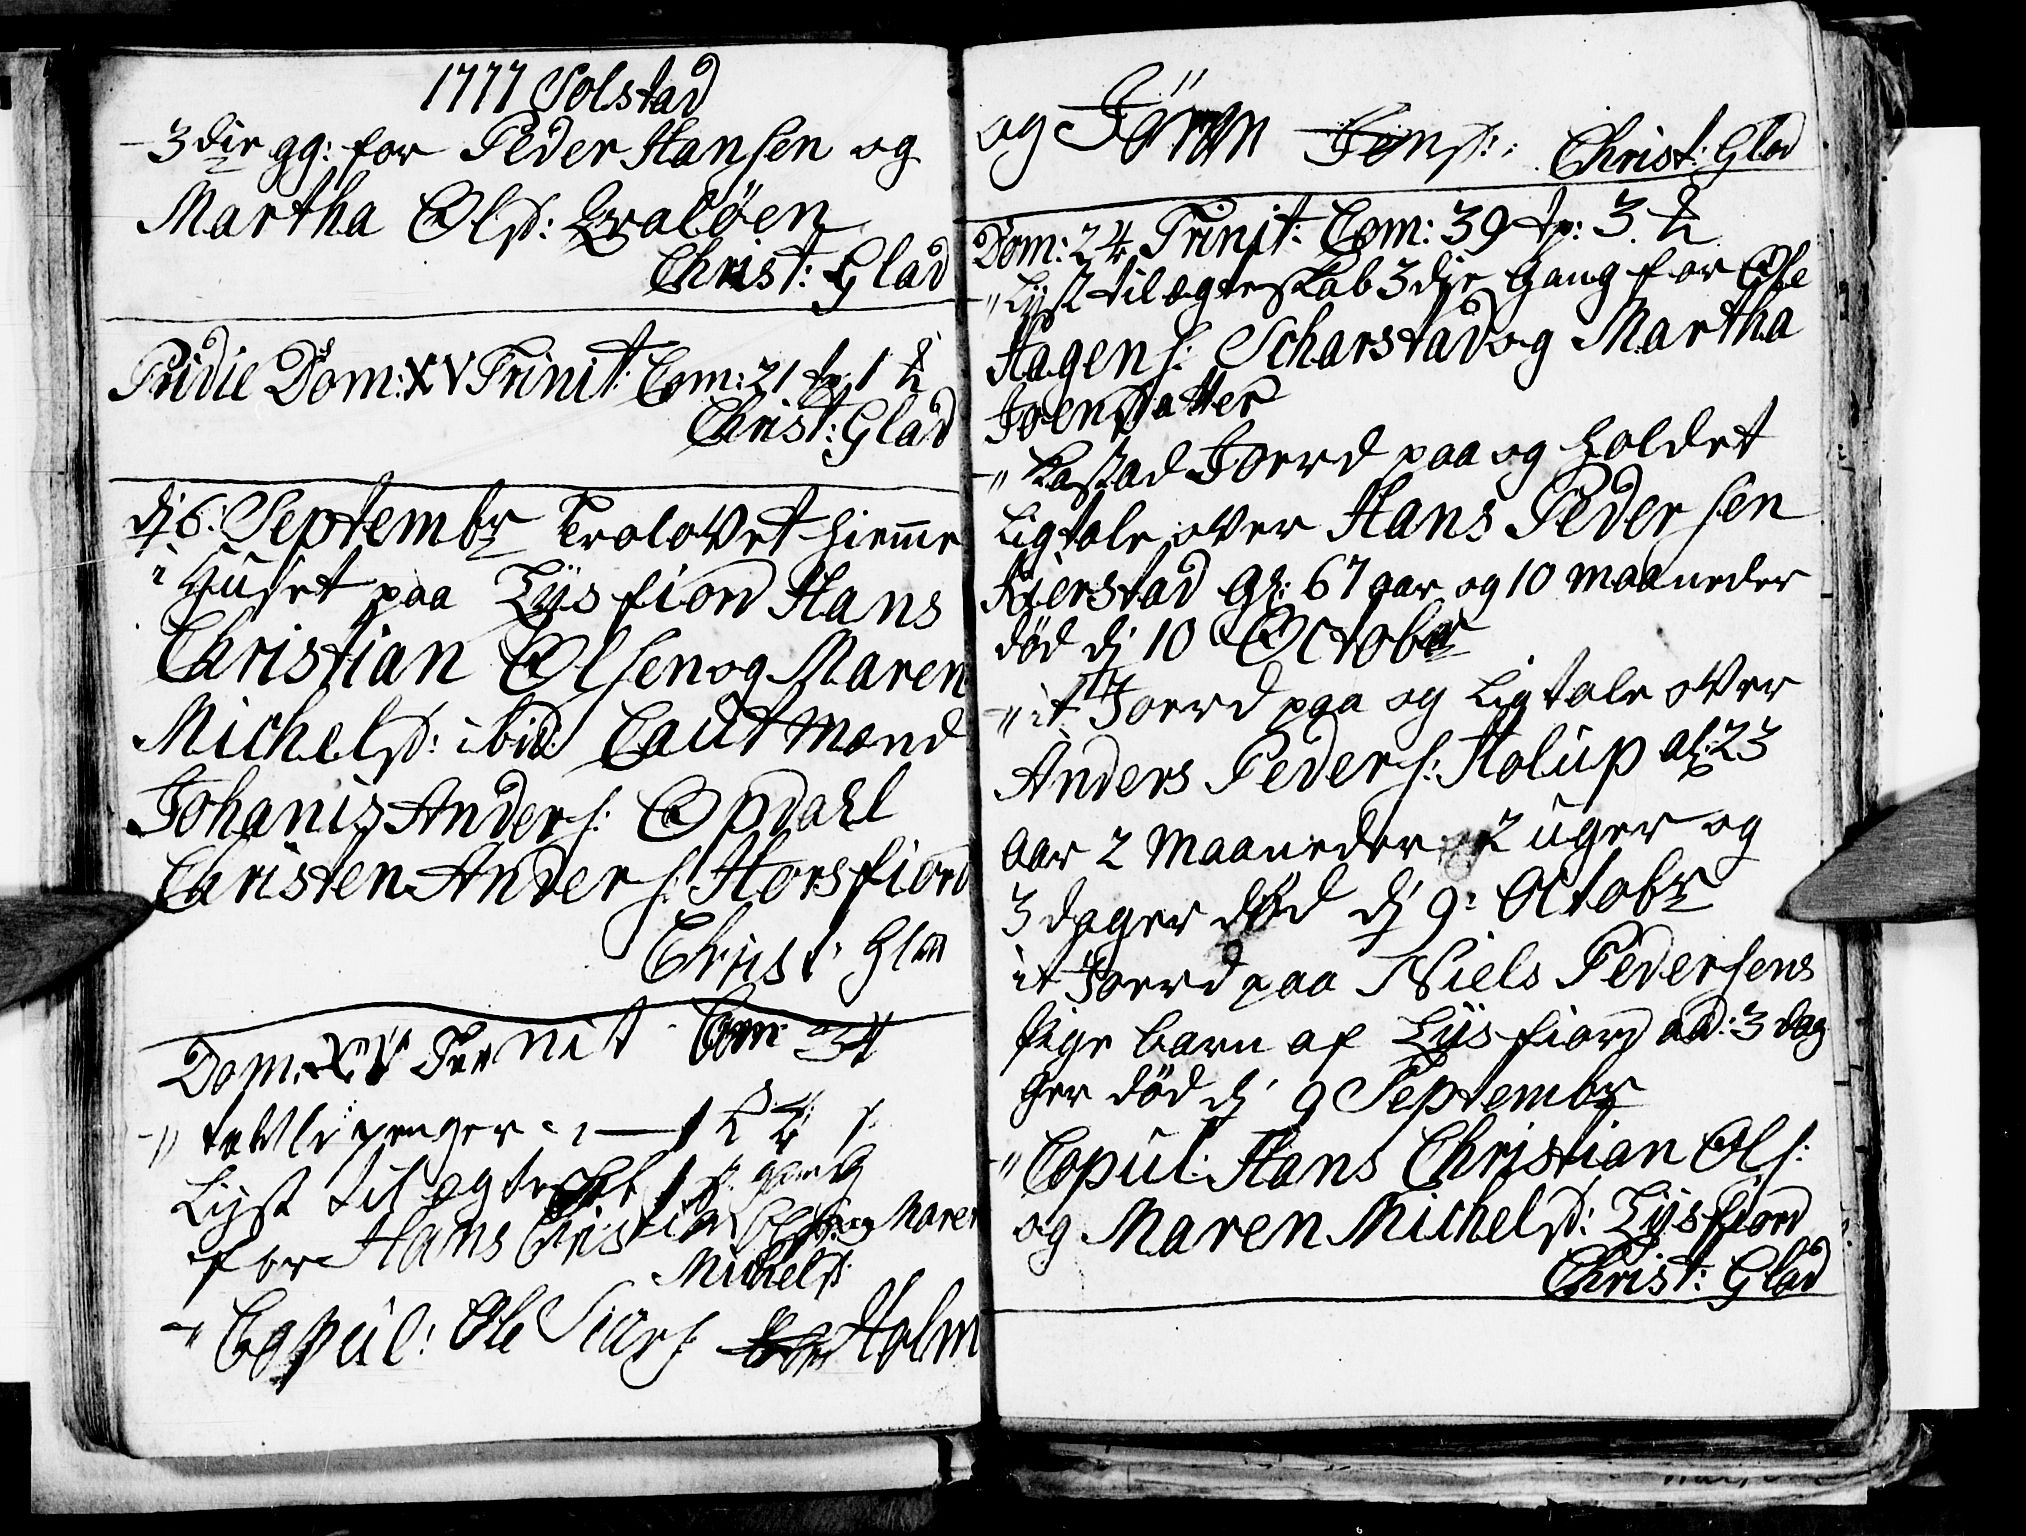 1777 Solstad
3die gg: for Peder Hansen og
Martha Olsd: Qvaløen
Christ: Glad
Pridie Dom: XV Trinit: Com: 21 tp: 1
Christ: Glad
dj 6: Septembr Trolovet hiemme
i Huset paa Lysfiord Hans
Christian Olsen og Maren
Michelsd: ibid: Cautmænd
Johanis Anders: Opdahl
Christen Anders: Horsfiord
Christ: Glad
Dom: XV Trinit: Com: 34
" tavle penger 1
Lyst til egtesk: 1 gang
for Hans Cristian Olsen og Maren
Michelsd:
" Copul: Ole Siurs: Holm
og Jøren Jensd: Christ: Glad
Dom: 24 Trinit: Com: 39 tp: 3
" Lyst til ægteskab 3die gang for Ole
Hagens: Scharstad og Martha
Joensdatter
" kastad Joerd paa og holdet
Ligtale over Hans Pedersen
Kierstad gl: 67 aar og 10 maaneder
død dj 10 October
" it Joerd paa og Ligtale over
Anders Peders: Holup al: 23
aar 2 Maaneder 2 uger og
3 dager død dj 9: Octobr
it Joerd paa Niels Pedersens
pige barn af Lysfiord ald: 3 dag
ger død dj 9 Septembr
" Copul: Hans Christian Ols:
og Maren Michelsd: Lysfiord
Christ: Glad